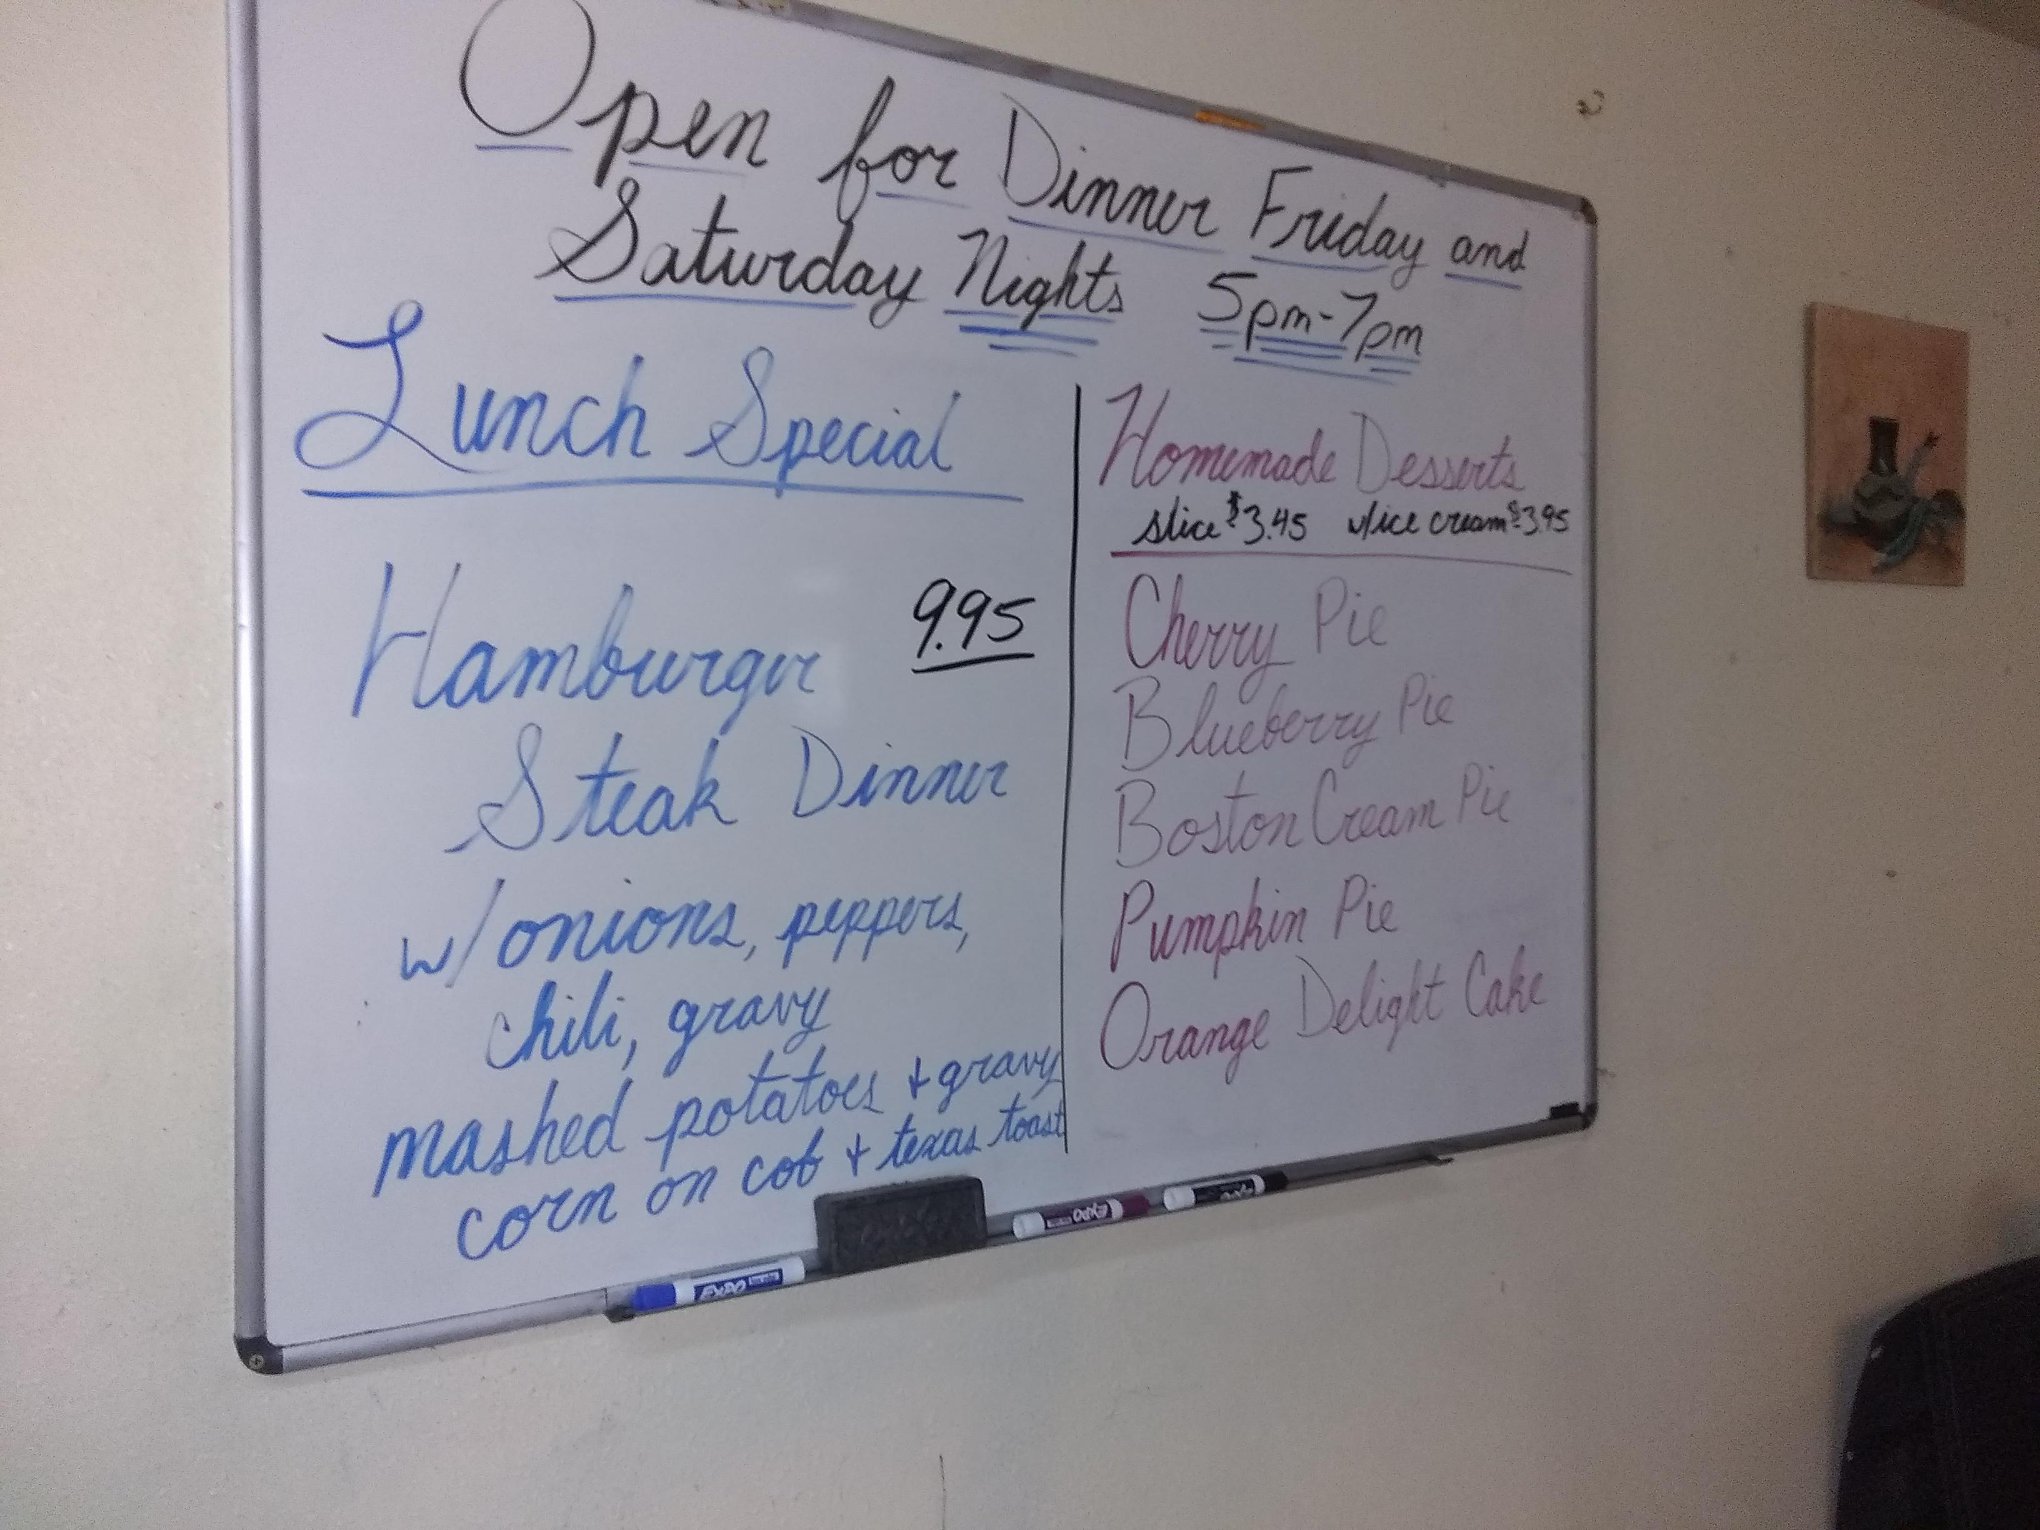 Open for Dinner Friday and
Saturday Nights 5pm-7pm
Lunch Special
Hamburger 9.95
Steak Dinner
w/onions, peppers,
chili, gravy
mashed potatoes + gravy
corn on cob + texas toast
Homemade Desserts
slice $3.45 w/ice cream $3.95
Cherry Pie
Blueberry Pie
Boston Cream Pie
Pumpkin Pie
Orange Delight Cake
EXPO
EXPO